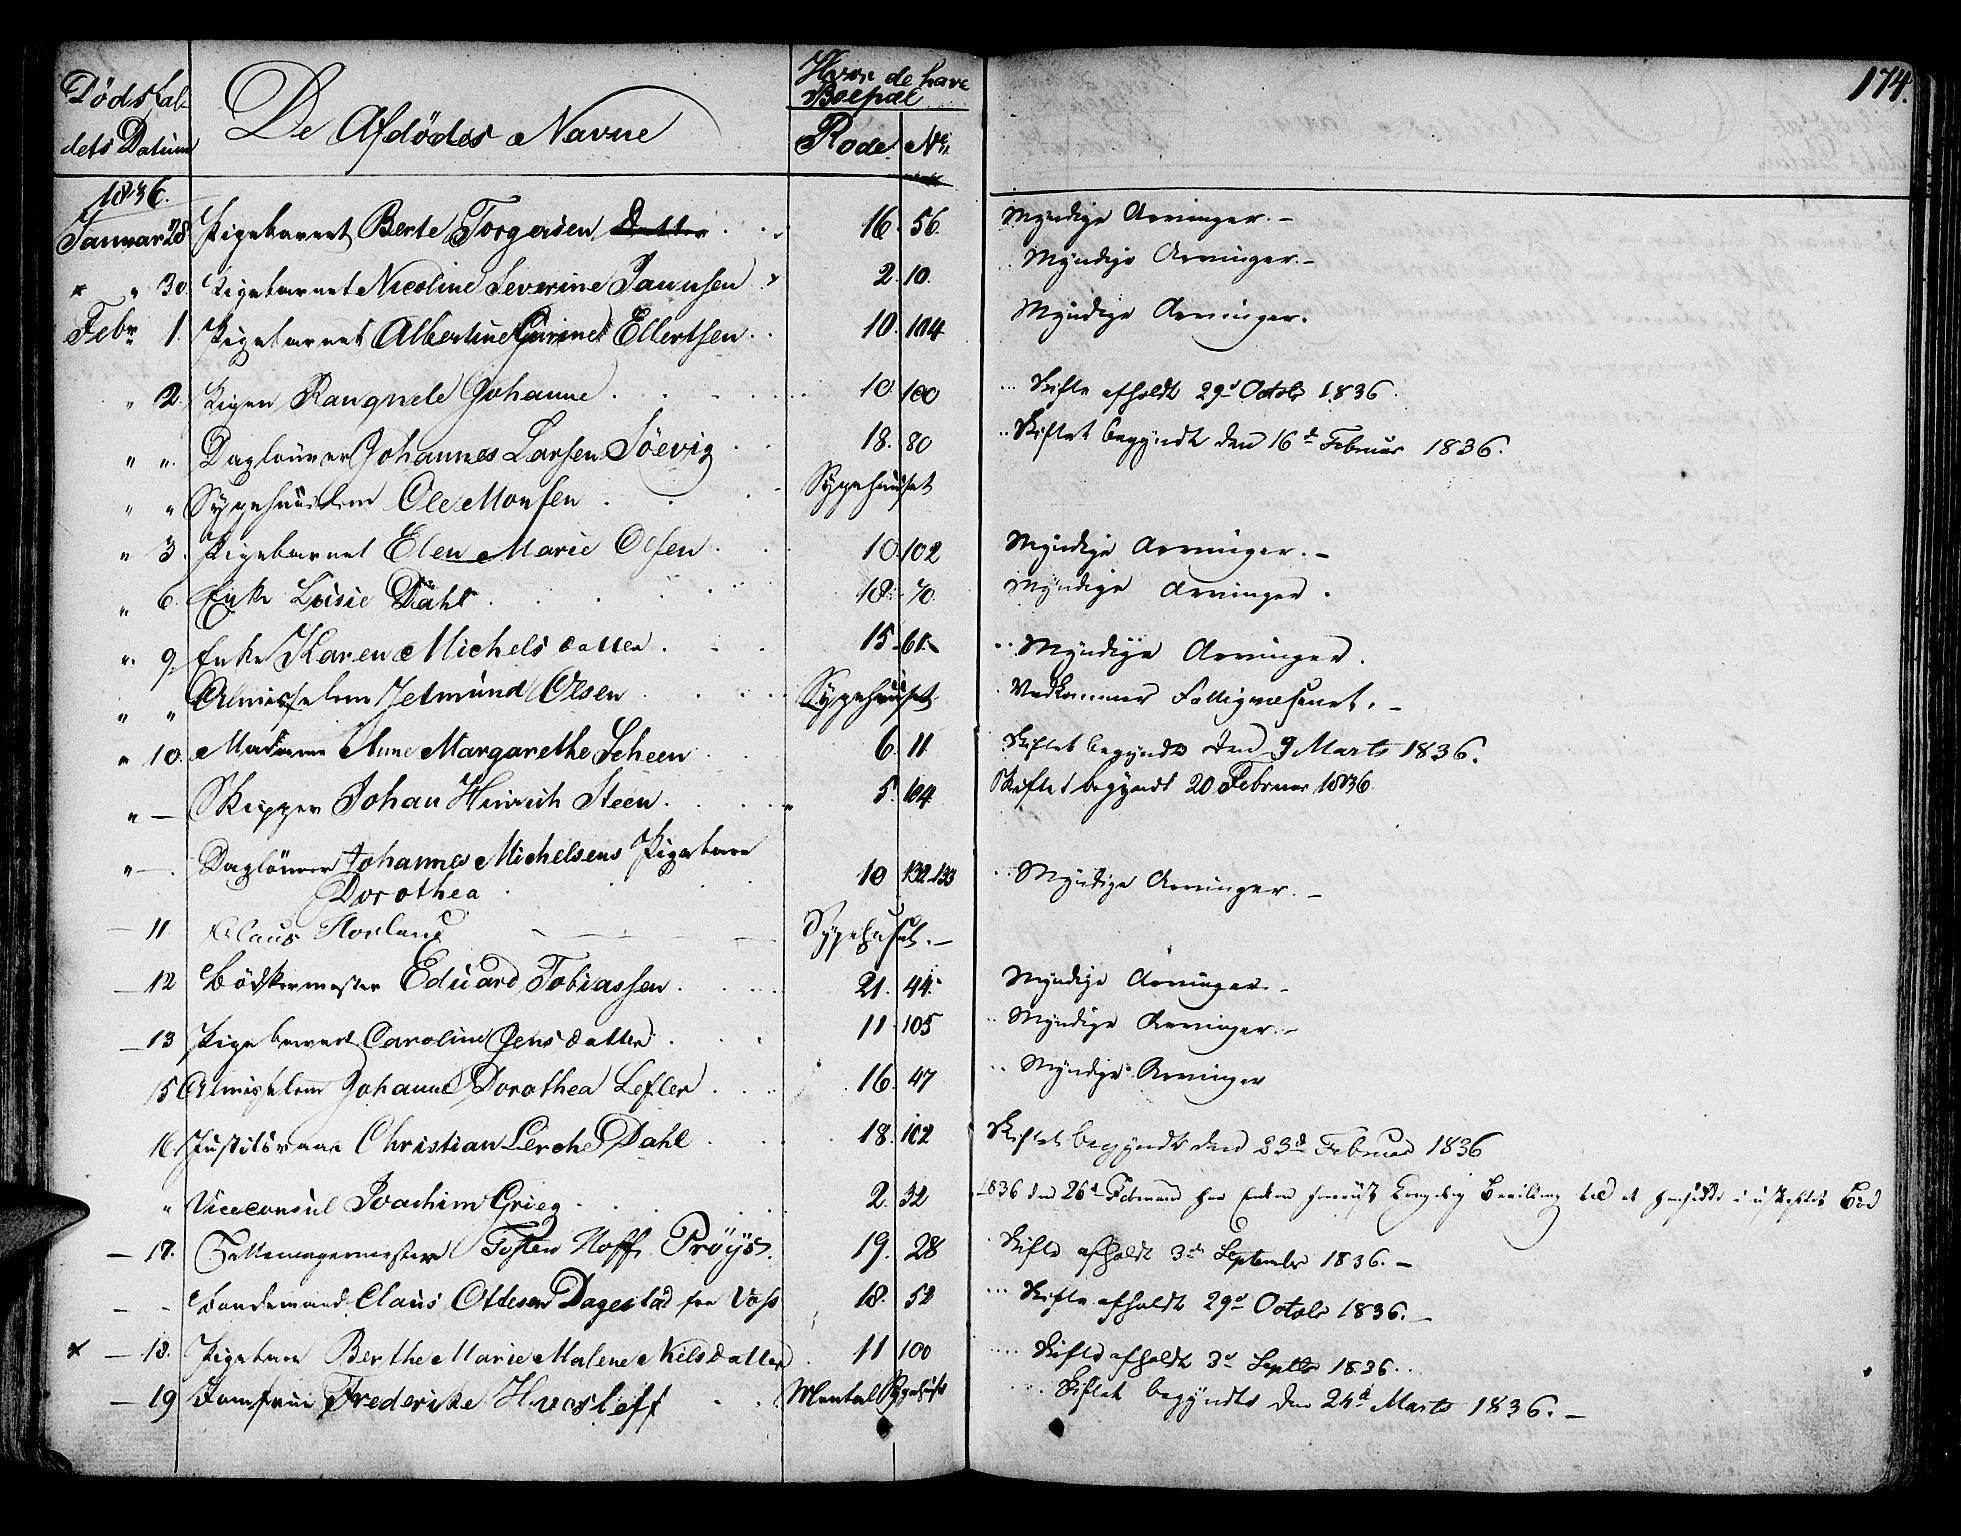 174.
Dödsfal-
dets Datum
De Afdödes Navne
Hvor de have
Boepæl
Rode No
1836.
Januar 28 Pigebarnet Berte Torgersen Datter 16. 56. Myndige Arvinger. -
" 30. Pigebarnet Nicoline Severine Jannsen 2. 10. Myndige Arvinger. -
Febr 1. Pigebarnet Albertine Ellertsen 10. 104 Myndige Arvinger.
" 2. Pigen Rangnele Johanne 10 100 Skifte afholdt 29d Octobr 1836.
" ". Daglönner Johannes Larsen Söevig 18. 80 Skiftet begyndt den 16d Februar 1836.
" " Sygehuuslem Ole Monsen Sygehuuset
" 3. Pigebarnet Elen Marie Olsen 10. 102 Myndige Arvinger. -
" 6. Enke Lusie Dahl 18. 70. Myndige Arvinger.
" 9 Enke Karen Michelsdatter 15. 61. Myndige Arvinger.
" " Almisselem Jetmund Olsen Sygehuuset Vedkommer Fattigvæsenet. -
" 10. Madame Anne Margarethe Scheen 6. 11. Skiftet begyndt den 9 Marts 1836.
" - Skipper Johan Hinrich Steen 5. 104 Skiftet begyndt 20 Februar 1836.
" - Daglönner Johannes Michelsens Pigebarn
Dorothea 10 132-133 Myndige Arvinger. -
- 11 Claus Horland Sygehuset. -
- 12 Bödkermester Eduard Tobiassen 21. 44. Myndige Arvinger. -
- 13 Pigebarnet Caroline Jensdatter 11. 105 Myndige Arvinger. -
15 Almisselem Johanne Dorothea Lefler 16. 47 Myndige Arvinger
16. Justitsraad Christian Lerche Dahl 18. 102 Skiftet begyndt den 23d Februar 1836
" Viceconsul Joachim Grieg 2. 32 1836 den 26d Februar har Enken Kongelig Bevilling til at hensidde i uskiftet Bod
- 17. Feldmagermester Tosten Hoff Pröys. 19. 28 Skifte afholdt 3de September 1836. -
- - Bondemand Claus Ottesen Dagestad fra Voss 18. 52 Skifte afholdt 29d Octobr 1836. -
x - 18. Pigebarn Berthe Marie Malene Nilsdatter 11 100 Skifte afholdt 3d Septbr 1836.
- 19 Jomfrue Frederike Hvosleff Mental Sygehuus Skiftet begyndte den 24d Marts 1836. -